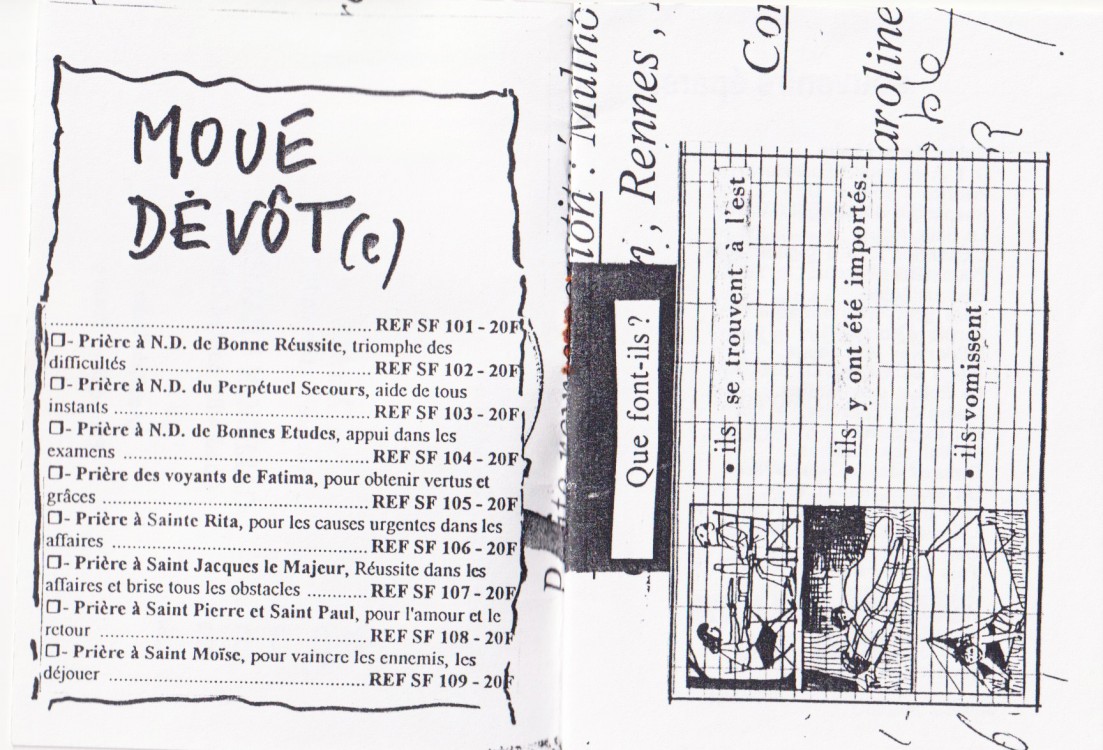 MOUE
DÉVÔT(e)
........ REF SF 101 - 20F
❒- Prière à N.D. de Bonne Réussite, triomphe des
difficultés ........ REF SF 102 - 20F
❒- Prière à N.D. du Perpétuel Secours, aide de tous
instants ........ REF SF 103 - 20F
❒- Prière à N.D. de Bonnes Etudes, appui dans les
examens ........ REF SF 104 - 20F
❒- Prière des voyants de Fatima, pour obtenir vertus et
grâces ........ REF SF 105 - 20F
❒- Prière à Sainte Rita, pour les causes urgentes dans les
affaires ........ REF SF 106 - 20F
❒- Prière à Saint Jacques le Majeur, Réussite dans les
affaires et brise tous les obstacles ........ REF SF 107 - 20F
❒- Prière à Saint Pierre et Saint Paul, pour l'amour et le
retour ........ REF SF 108 - 20F
❒- Prière à Saint Moïse, pour vaincre les ennemis, les
déjouer ........ REF SF 109 - 20F
Rennes,
aroline
Que font-ils ?
• ils se trouvent à l'est
• ils y ont été importés.
• ils vomissent